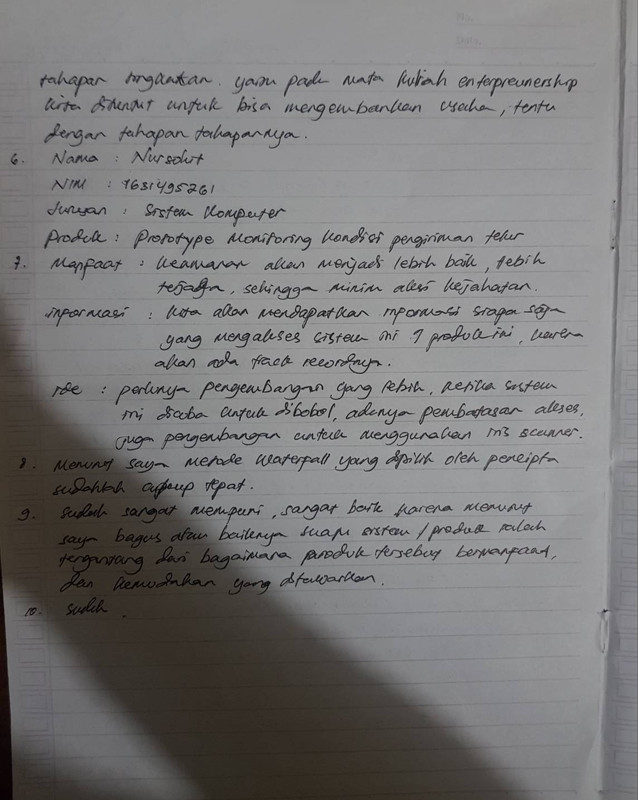 tahapan tingkatan. yaitu pada mata kuliah enterpreunership
kita dituntut untuk bisa mengembankan usaha, tentu
dengan tahapan tahapannya.
6. Nama : Nursolut
NIM : 1631495261
Jurusan : Sistem Komputer
Produk : Prototype Monitoring kondisi pengiriman telur
7. Manfaat : keamanan akan menjadi lebih baik, lebih
terjaga, sehingga minim aksi kejahatan.
informasi : kita akan mendapatkan informasi siapa saja
yang mengakses sistem ini / produk ini, karena
akan ada track recordnya.
ide : perlunya pengembangan yang lebih, ketika sistem
ini dicoba untuk dibobol, adanya pembatasan akses,
juga pengembangan untuk menggunakan iris scanner.
8. Menurut saya metode Waterfall yang dipilih oleh pencipta
sudahlah cukup tepat.
9. Sudah sangat mempuni, sangat baik karena menurut
saya bagus atau baiknya suatu sistem / produk ialah
tergantung dari bagaimana produk tersebut bermanfaat,
dan kemudahan yang ditawarkan.
10. Sudah.